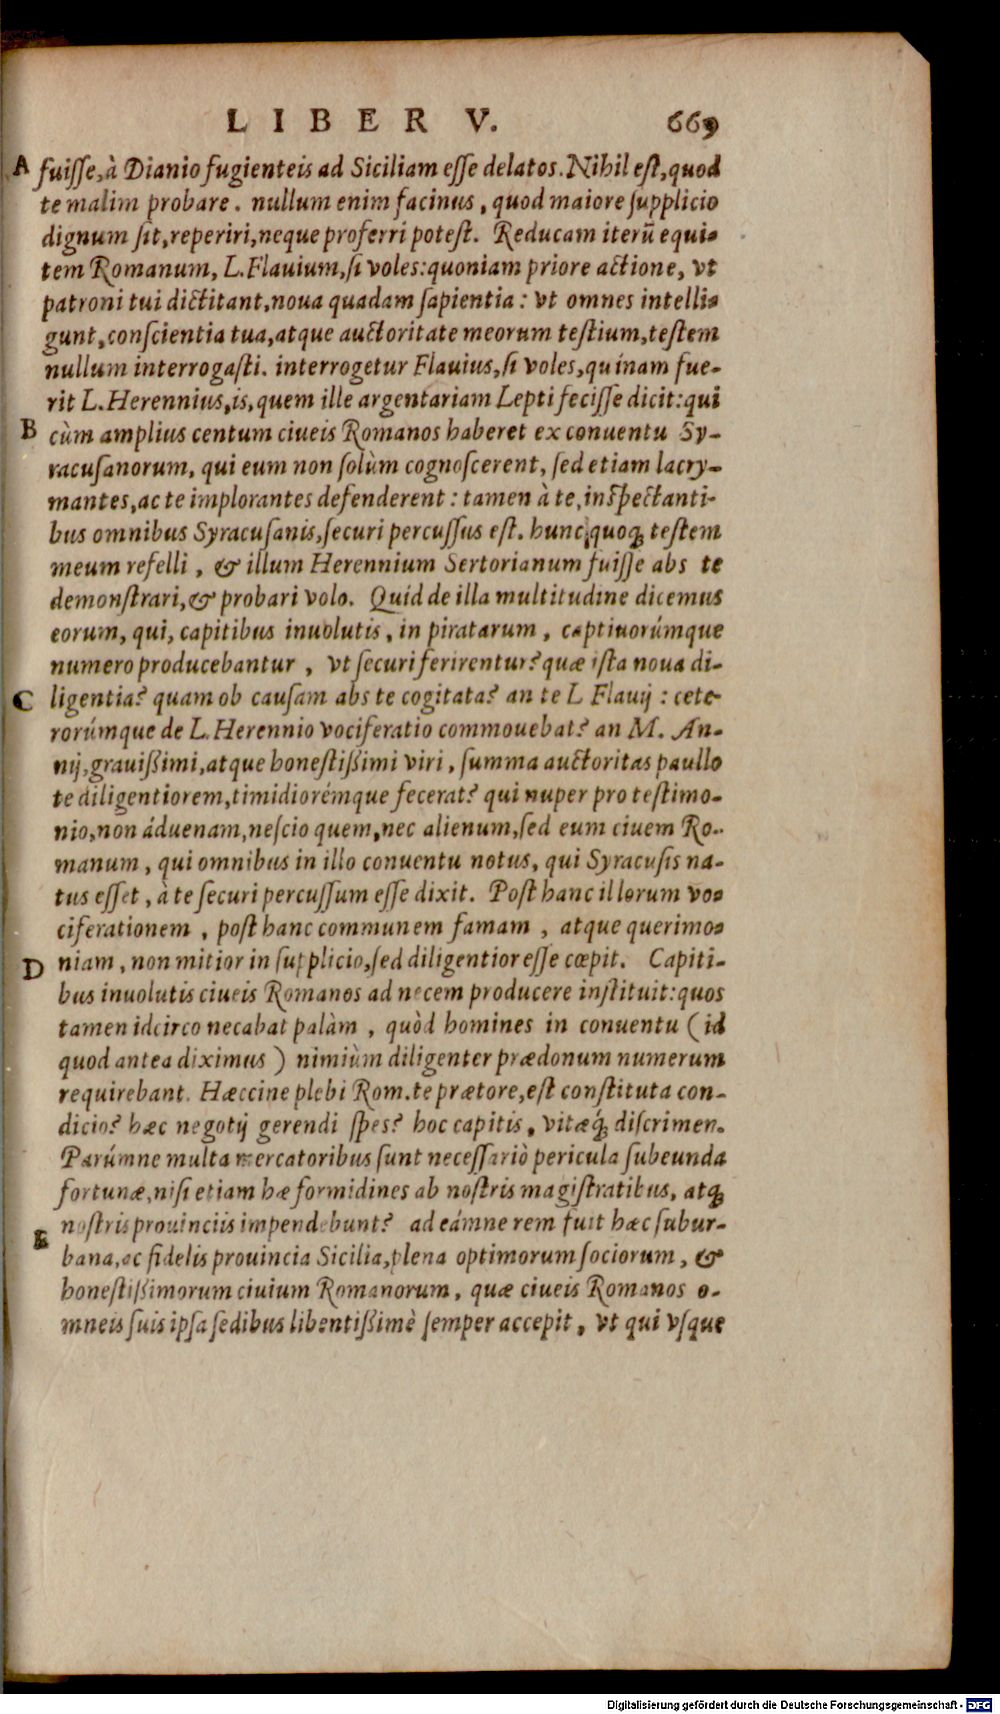 LIBER V. 669
A fuiſſe, à Dianio fugienteis ad Siciliam eſſe delatos. Nihil eſt, quod
te malim probare. nullum enim facinus, quod maiore ſupplicio
dignum ſit, reperiri, neque proferri poteſt. Reducam iterũ equi-
tem Romanum, L. Flauium, ſi voles: quoniam priore actione, vt
patroni tui dictitant, noua quadam ſapientia: vt omnes intelli-
gunt, conſcientia tua, atque auctoritate meorum teſtium, teſtem
nullum interrogaſti. interrogetur Flauius, ſi voles, quínam fue-
rit L. Herennius, is, quem ille argentariam Lepti feciſſe dicit: qui
B cùm amplius centum ciueis Romanos haberet ex conuentu Sy-
racuſanorum, qui eum non ſolùm cognoſcerent, ſed etiam lacry-
mantes, ac te implorantes defenderent: tamen à te, inſpectanti-
bus omnibus Syracuſanis, ſecuri percuſſus eſt. hunc quoq; teſtem
meum refelli, & illum Herennium Sertorianum fuiſſe abs te
demonſtrari, & probari volo. Quid de illa multitudine dicemus
eorum, qui, capitibus inuolutis, in piratarum, captiuorúmque
numero producebantur, vt ſecuri ferirentur? quæ iſta noua di-
C ligentia? quam ob cauſam abs te cogitata? an te L Flauij: cete-
rorúmque de L. Herennio vociferatio commouebat? an M. An-
nij, grauißimi, atque honeſtißimi viri, ſumma auctoritas paullo
te diligentiorem, timidiorémque fecerat? qui nuper pro teſtimo-
nio, non áduenam, neſcio quem, nec alienum, ſed eum ciuem Ro-
manum, qui omnibus in illo conuentu notus, qui Syracuſis na-
tus eſſet, à te ſecuri percuſſum eſſe dixit. Poſt hanc illorum vo-
ciferationem, poſt hanc communem famam, atque querimo-
D niam, non mitior in ſupplicio, ſed diligentior eſſe cœpit. Capiti-
bus inuolutis ciueis Romanos ad necem producere inſtituit: quos
tamen idcirco necabat palàm, quòd homines in conuentu (id
quod antea diximus) nimiùm diligenter prædonum numerum
requirebant. Hæccine plebi Rom. te prætore, eſt conſtituta con-
dicio? hæc negotij gerendi ſpes? hoc capitis, vitæq́; diſcrimen.
Parúmne multa mercatoribus ſunt neceſſariò pericula ſubeunda
fortunæ, niſi etiam hæ formidines ab noſtris magiſtratibus, atq;
E noſtris prouinciis impendebunt? ad eámne rem fuit hæc ſubur-
bana, ac fidelis prouincia Sicilia, plena optimorum ſociorum, &
honeſtißimorum ciuium Romanorum, quæ ciueis Romanos o-
mneis ſuis ipſa ſedibus libentißimè ſemper accepit, vt qui vſque
Digitalisierung gefördert durch die Deutsche Forschungsgemeinschaft - DFG